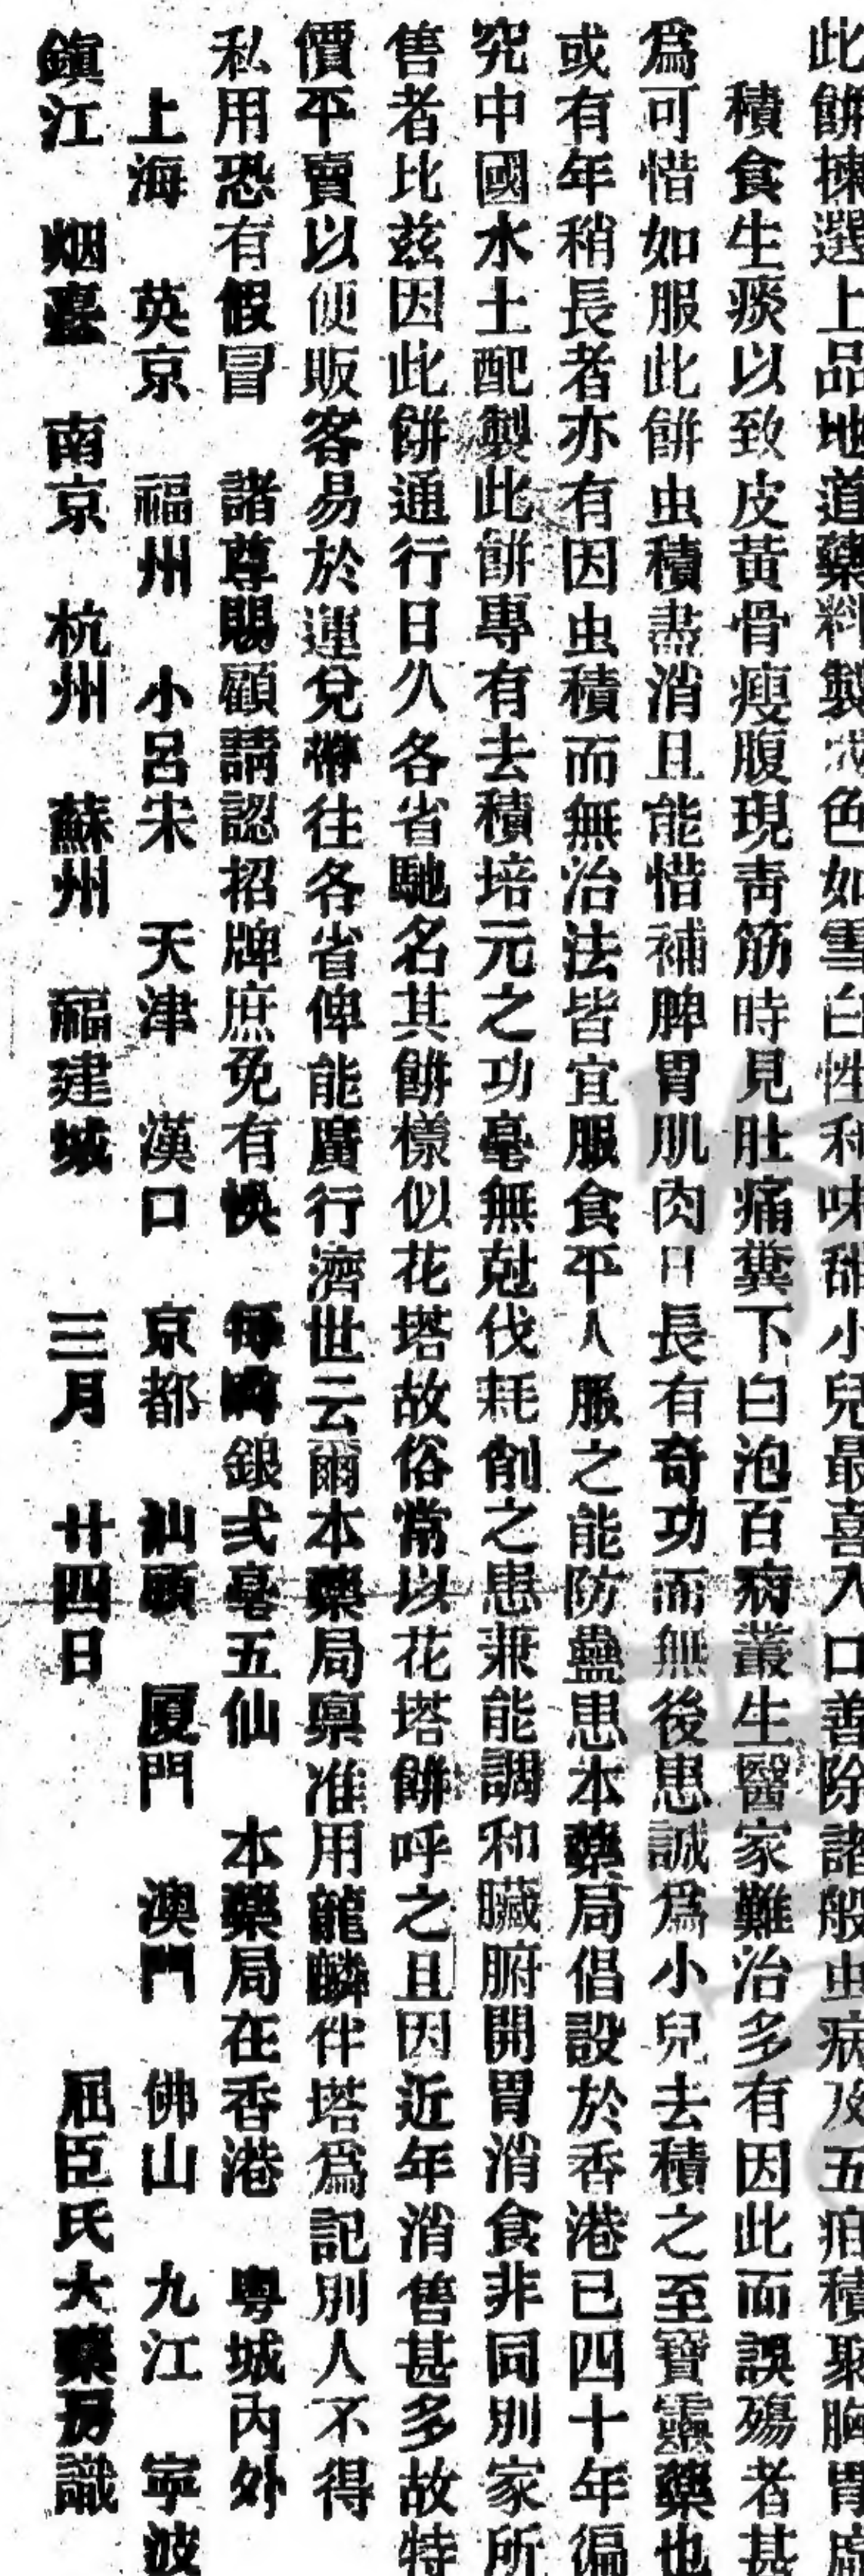 此餅揀選上品地道藥料製成色如雪白性和味甜小兒最喜入口善除諸般虫病及五疳積聚胸胃虛
積食生痰以致皮黃骨瘦腹現靑筋時見肚痛糞下白泡百病叢生醫家難治多有因此而誤殤者甚
爲可惜如服此餅虫積盡消且能惜補脾胃肌肉日長有奇功而無後患誠爲小兒去積之至寶靈藥也
或有年稍長者亦有因虫積而無治法皆宜服食平人服之能防蠱患本藥局倡設於香港已四十年徧
究中國水土配製此餅專有去積培元之功毫無尅伐耗削之患兼能調和臟腑開胃消食非同別家所
售者比茲因此餅通行日久各省馳名其餅樣似花塔故俗常以花塔餅呼之且因近年消售甚多故特
價平賣以便販客易於運兌帶往各省俾能廣行濟世云爾本藥局稟准用龍麟伴塔爲記別人不得
私用恐有假冒 諸尊賜顧請認招牌庶免有悞 每磅銀弍毫五仙 本藥局在香港 粤城內外
上海 英京 福州 小呂宋 天津 漢口 京都 汕頭 厦門 澳門 佛山 九江 寧波
鎭江 烟臺 南京 杭州 蘇州 福建城 三月 廿四日 屈臣氏大藥房識